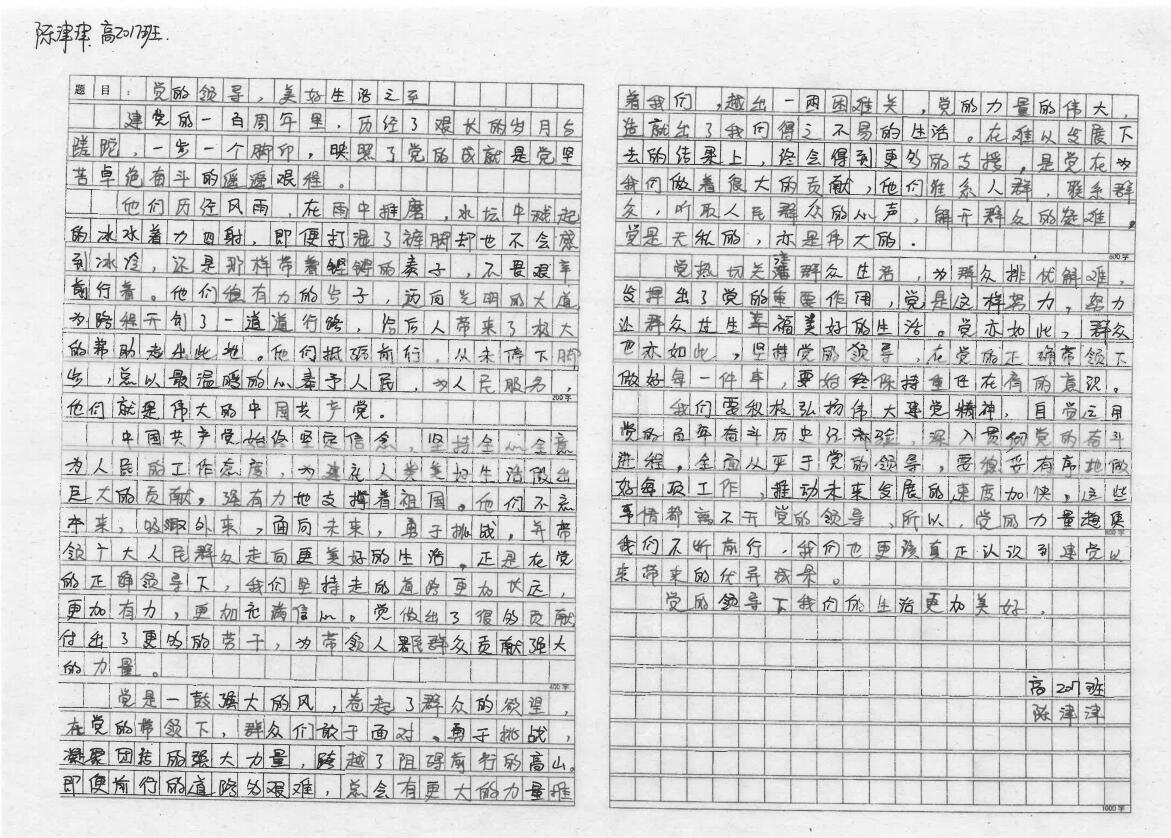 陈津津 高2017班.
题目：党的领导，美好生活之至
建党的一百周年里，历经了艰长的岁月与
蹉跎，一步一个脚印，映照了党的成就是党坚
苦卓绝奋斗的遥遥艰程。
他们历经风雨，在雨中推磨，水坛中溅起
的冰水着力四射，即便打湿了裤脚却也不会感
到冰冷，还是那样带着铿锵的奏子，不畏艰辛
前行着。他们很有力的步子，迈向光明的大道
为路程开创了一道道行路，给后人带来了极大
的帮助走出此地。他们抵砺前行，从未停下脚
步，总以最温暖的心奉予人民，为人民服务，
200字
他们就是伟大的中国共产党。
中国共产党始终坚定信念，坚持全心全意
为人民的工作态度，为建在人类美好生活做出
巨大的贡献。强有力地支撑着祖国。他们不忘
本来，吸取外来，面向未来，勇于挑战。并带
领广大人民群众走向更美好的生活。正是在党
的正确领导下，我们坚持走的道路更加长远，
更加有力，更加充满信心。党做出了很多贡献
付出了更多的劳干，为带领人民群众贡献强大
的力量。
400字
党是一鼓强大的风，卷起了群众的欲望，
在党的带领下，群众们敢于面对。勇于挑战，
凝聚团结的强大力量，跨越了阻碍前行的高山。
即便前行的道路多艰难，总会有更大的力量推
着我们，越出一两困难关，党的力量的伟大，
造就出了我们得之不易的生活。在难以发展下
去的结果上，终会得到更多的支援。是党在为
我们做着很大的贡献，他们维系人群，联系群
众，听取人民群众的心声，解开群众的疑难。
党是无私的，亦是伟大的.
600字
党热切关注群众生活，为群众排忧解难，
发挥出了党的重要作用，党是这样努力，努力
让群众过生幸福美好的生活。党亦如此，群众
也亦如此，坚持党的领导，在党的正确带领下
做好每一件事，要始终保持重任在肩的意识。
我们要积极弘扬伟大建党精神，自觉运用
党的百年奋斗历史经验，深入贯彻党的奋斗
进程。全面从严于党的领导，要很妥有序地做
好每项工作，推动未来发展的速度加快。这些
事情都离不开党的领导，所以，党的力量趋使
800字
我们不断前行，我们也更该真正认识到建党以
来带来的优异成果。
党的领导下我们的生活更加美好.
高2017班
陈津津
1000字